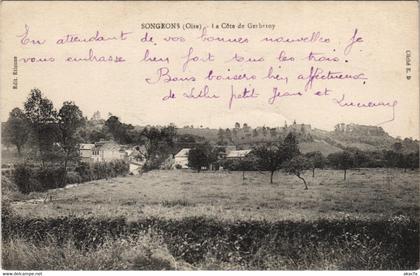 SONGEONS (Oise) - La Côte de Gerberoy
En attendant de vos bonnes nouvelles. Je
vous embrasse bien fort tous les trois.
Bons baisers bien affectueux
de Lulu petit Jean et Lucienne
Edit. Etienne
Cliché E. D